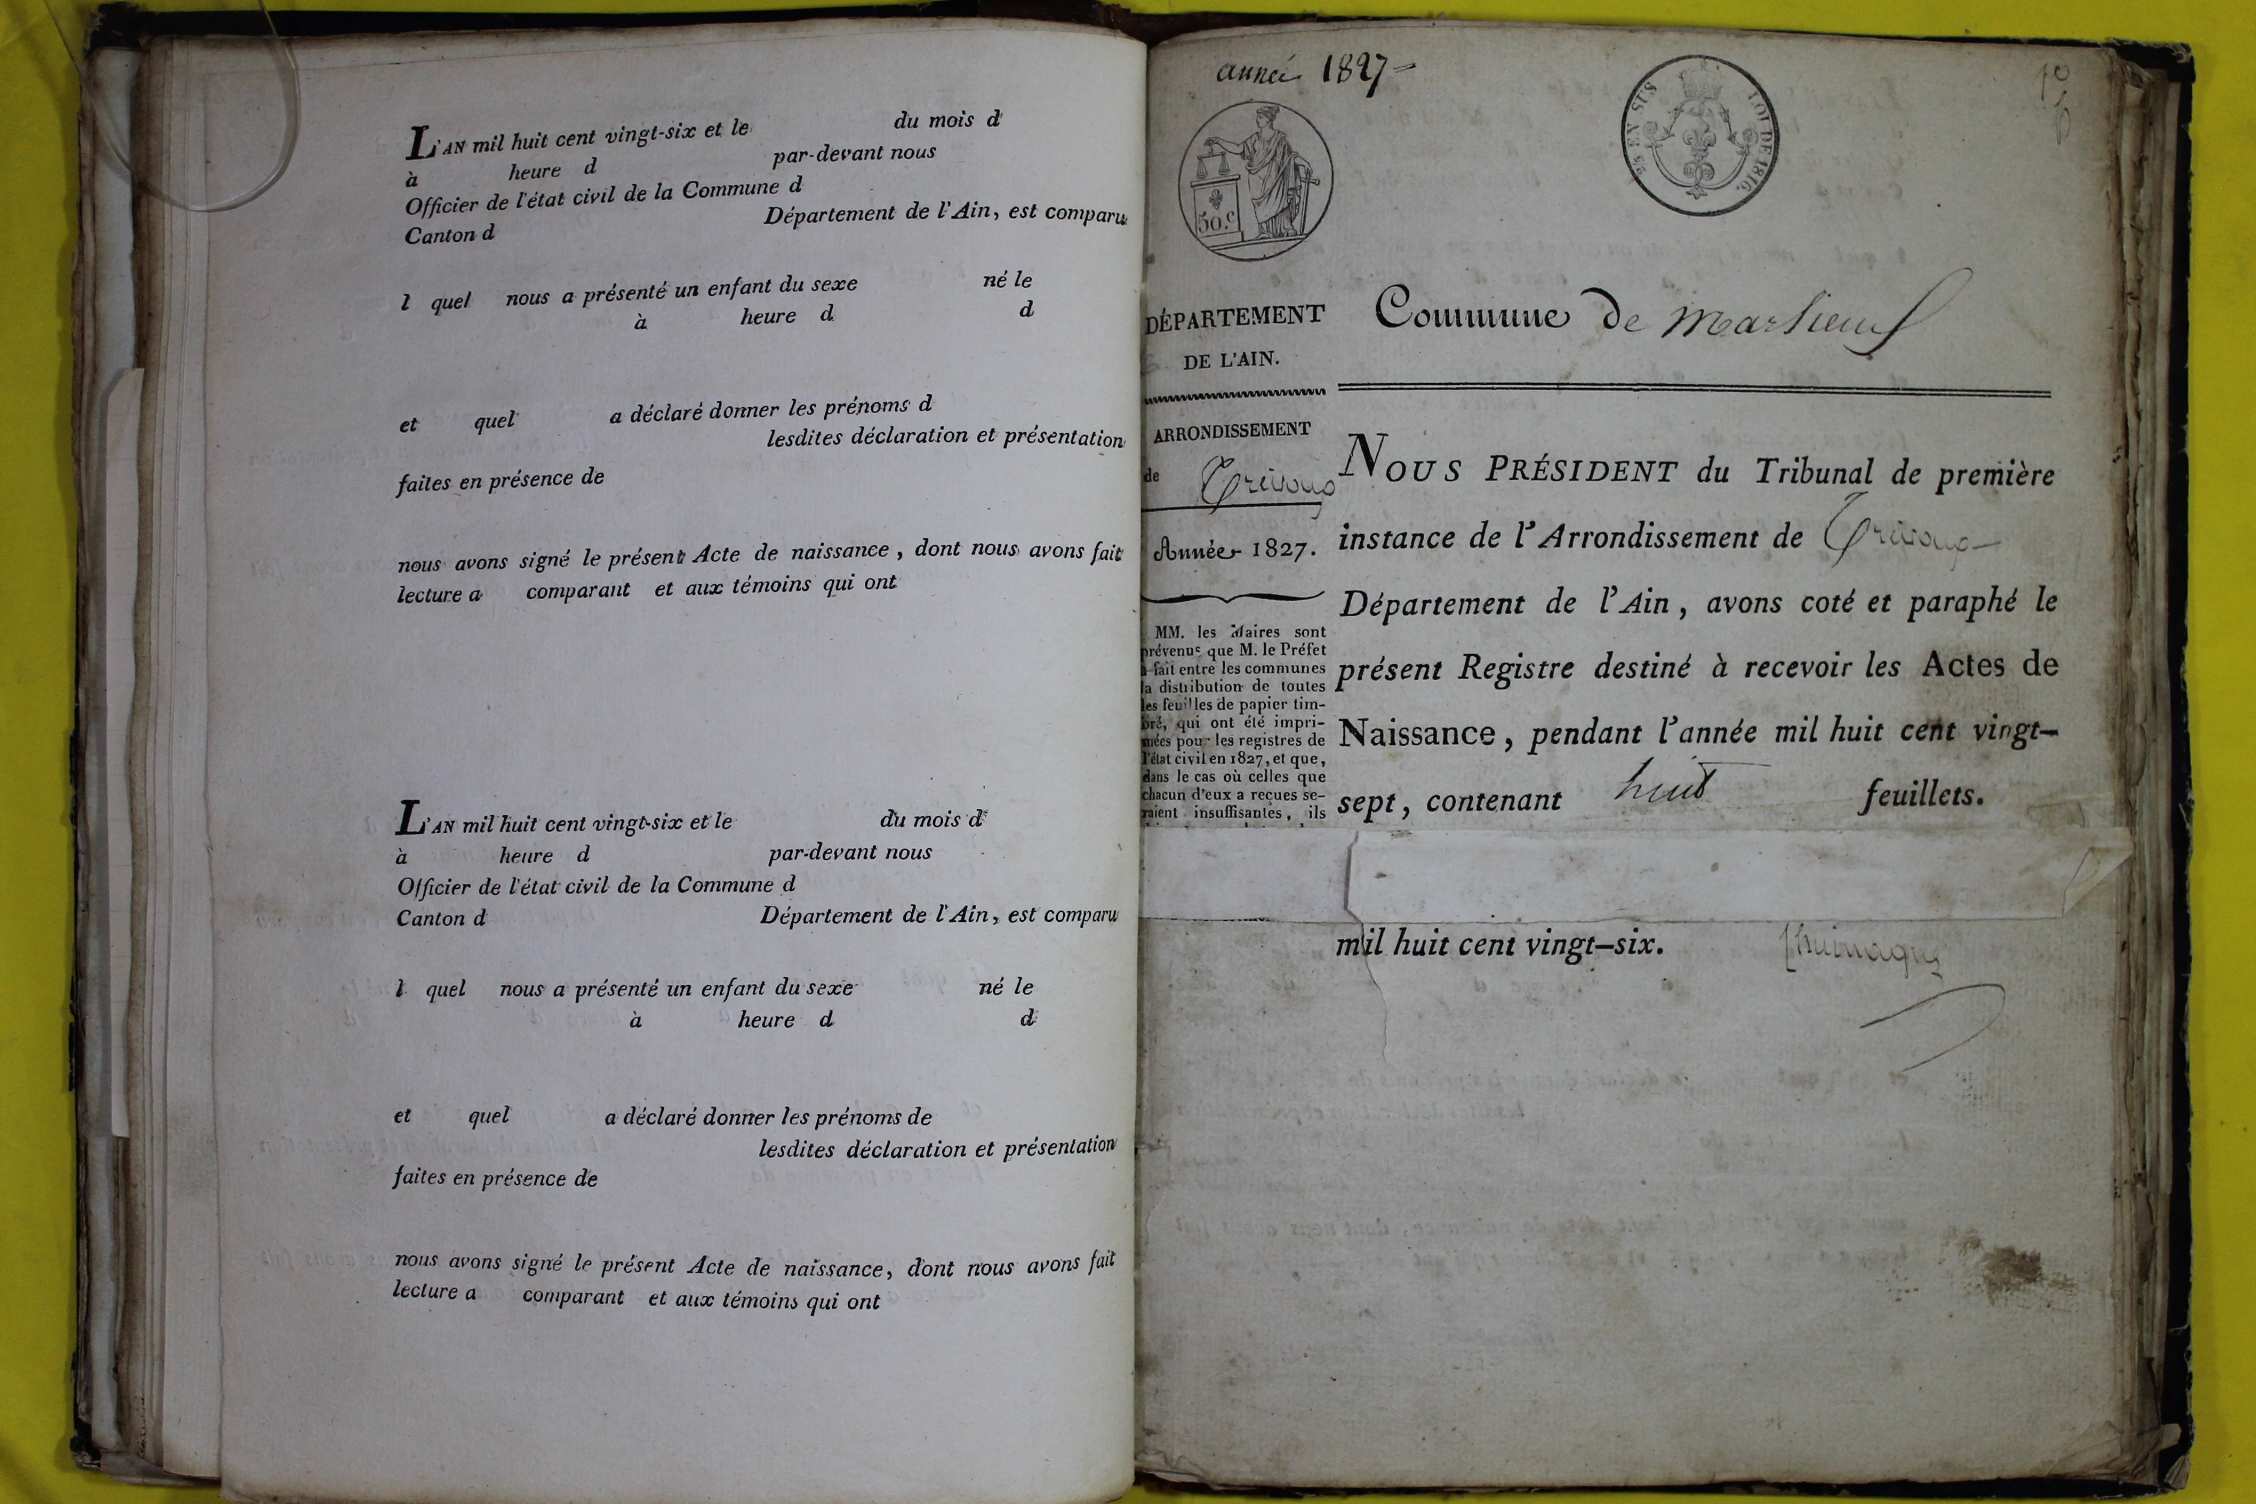 L'AN mil huit cent vingt-six et le du mois d
à heure d par-devant nous
Officier de l'état civil de la Commune d
Canton d Département de l'Ain, est comparu
l quel nous a présenté un enfant du sexe né le
à heure d d
et quel a déclaré donner les prénoms d
lesdites déclaration et présentation
faites en présence de
nous avons signé le présent Acte de naissance, dont nous avons fait
lecture a comparant et aux témoins qui ont
L'AN mil huit cent vingt-six et le du mois d
à heure d par-devant nous
Officier de l'état civil de la Commune d
Canton d Département de l'Ain, est comparu
l quel nous a présenté un enfant du sexe né le
à heure d d
et quel a déclaré donner les prénoms de
lesdites déclaration et présentation
faites en présence de
nous avons signé le présent Acte de naissance, dont nous avons fait
lecture a comparant et aux témoins qui ont
année 1827
50.c
EN SUS LOI DE 1816.
DÉPARTEMENT
DE L'AIN.
ARRONDISSEMENT
de Trevoux
Année 1827.
MM. les Maires sont
prévenus que M. le Préfet
a fait entre les communes
la distribution de toutes
les feuilles de papier tim-
bré, qui ont été impri-
mées pour les registres de
l'état civil en 1827, et que,
dans le cas où celles que
chacun d'eux a reçues se-
raient insuffisantes, ils
Commune de Marlieux
NOUS PRÉSIDENT du Tribunal de première
instance de l'Arrondissement de Trevoux
Département de l'Ain, avons coté et paraphé le
présent Registre destiné à recevoir les Actes de
Naissance, pendant l'année mil huit cent vingt-
sept, contenant huit feuillets.
mil huit cent vingt-six.